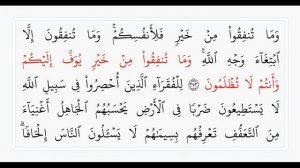 وَمَا تُنفِقُوا۟ مِنْ خَيْرٍ فَلِأَنفُسِكُمْ ۚ وَمَا تُنفِقُونَ إِلَّا
ٱبْتِغَآءَ وَجْهِ ٱللَّهِ ۚ وَمَا تُنفِقُوا۟ مِنْ خَيْرٍ يُوَفَّ إِلَيْكُمْ
وَأَنتُمْ لَا تُظْلَمُونَ ٢٧٢ لِلْفُقَرَآءِ ٱلَّذِينَ أُحْصِرُوا۟ فِى سَبِيلِ ٱللَّهِ
لَا يَسْتَطِيعُونَ ضَرْبًا فِى ٱلْأَرْضِ يَحْسَبُهُمُ ٱلْجَاهِلُ أَغْنِيَآءَ
مِنَ ٱلتَّعَفُّفِ تَعْرِفُهُم بِسِيمَٰهُمْ لَا يَسْـَٔلُونَ ٱلنَّاسَ إِلْحَافًا ۗ